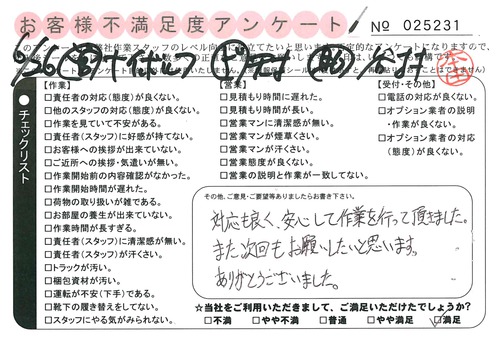 お客様不満足度アンケート
№ 025231
6/26
チェックリスト
【作業】
□責任者の対応(態度)が良くない。
□他のスタッフの対応(態度)が良くない。
□作業を見ていて不安がある。
□責任者(スタッフ)に好感が持てない。
□お客様への挨拶が出来ていない。
□ご近所への挨拶・気遣いが無い。
□作業開始前の内容確認がなかった。
□作業開始時間が遅れた。
□荷物の取り扱いが雑である。
□お部屋の養生が出来ていない。
□作業時間が長すぎる。
□責任者(スタッフ)に清潔感が無い。
□責任者(スタッフ)が汗くさい。
□トラックが汚い。
□梱包資材が汚い。
□運転が不安(下手)である。
□靴下の履き替えをしてない。
□スタッフにやる気がみられない。
【営業】
□見積もり時間に遅れた。
□見積もり時間が長い。
□営業マンに清潔感が無い。
□営業マンが煙草くさい。
□営業マンが汗くさい。
□営業態度が良くない。
□営業の説明と作業が一致してない。
【受付・その他】
□電話の対応が良くない。
□オプション業者の説明
・作業が良くない。
□オプション業者の対応
(態度)が良くない。
その他、ご意見・ご要望等ありましたらお書き下さい。
対応も良く、安心して作業を行って頂きました。
また次回もお願いしたいと思います。
ありがとうございました。
★当社をご利用いただきまして、ご満足いただけたでしょうか?
□不満 □やや不満 □普通 □やや満足 □満足